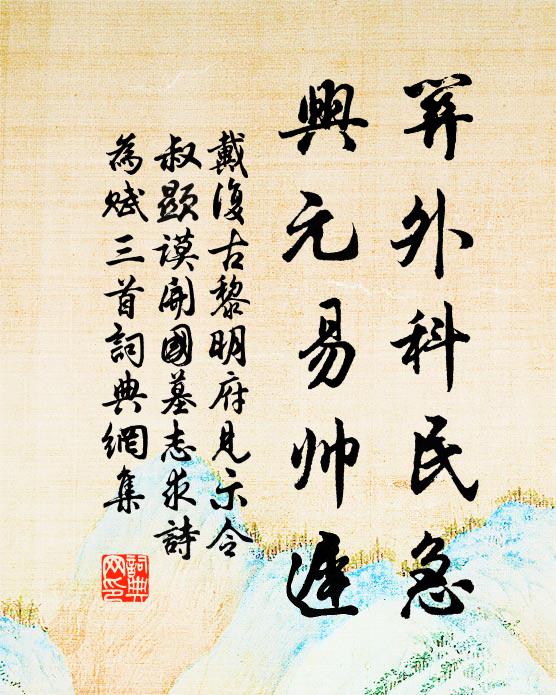 算外科民急
興元易帅遲
戴復古黎明府見示令
叔顯謨開國墓志求詩
為赋三首詞典網集
詞典
网印